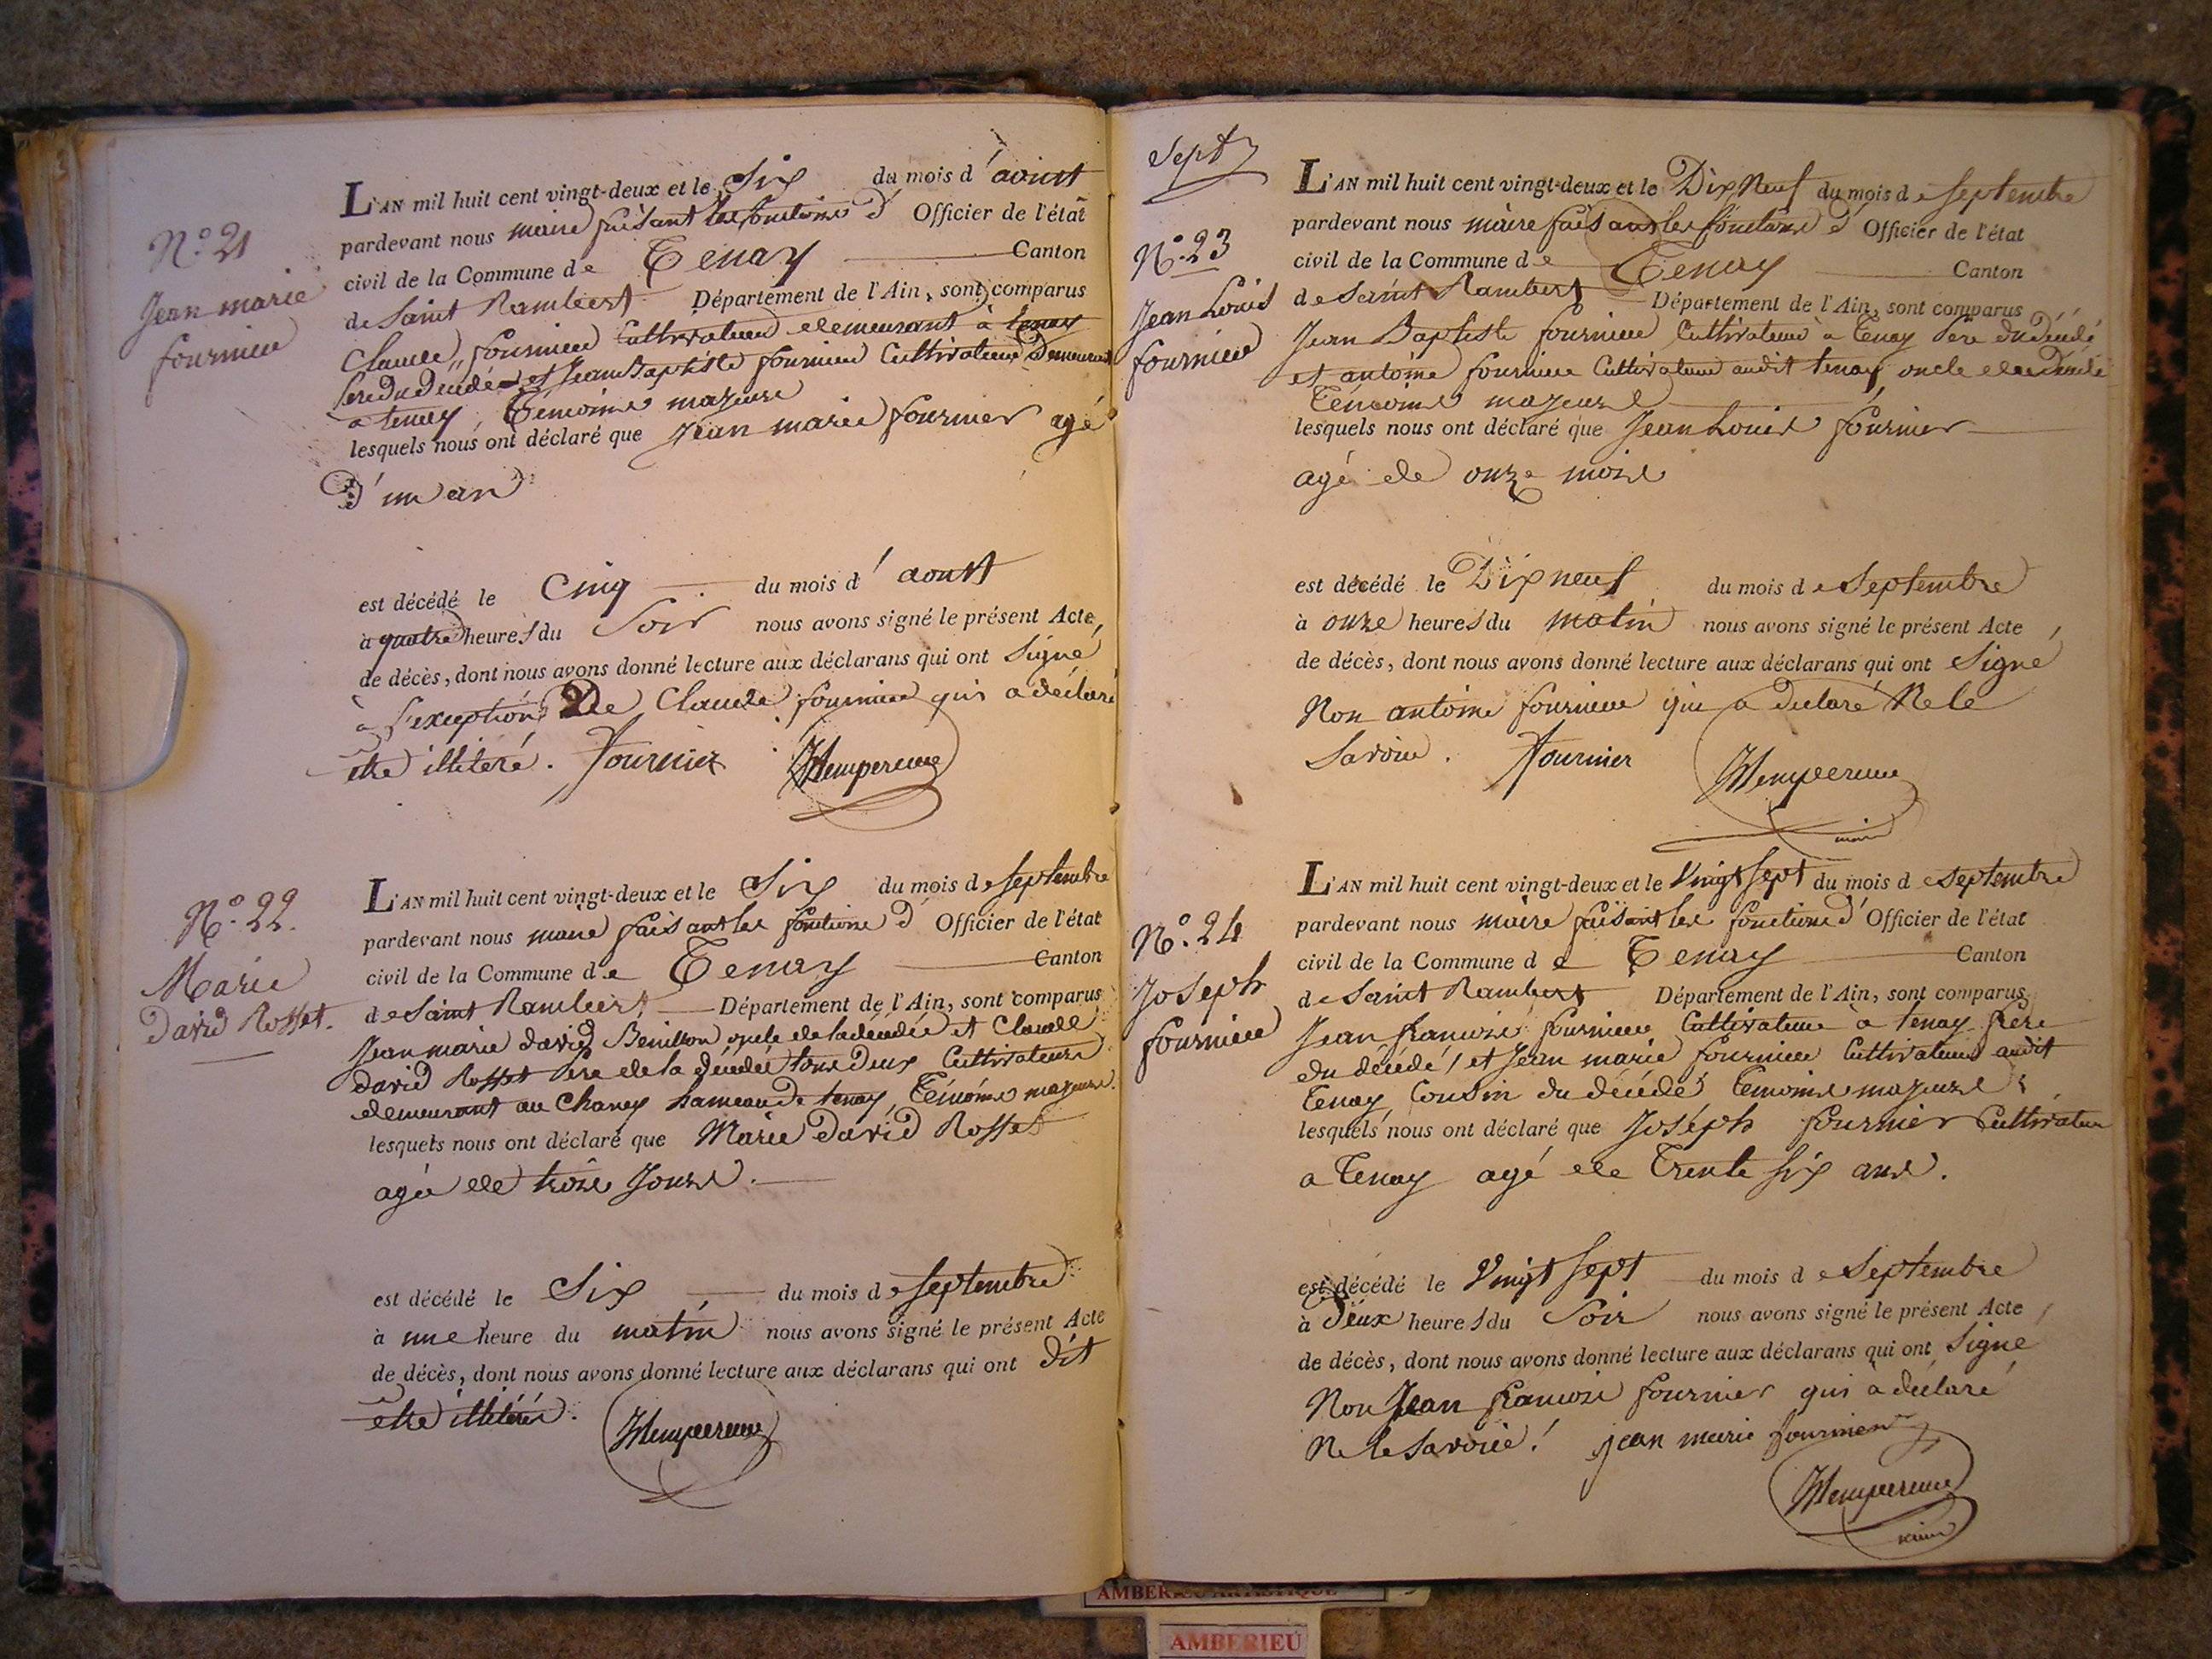 N.° 21
Jean marie
fournier
L'AN mil huit cent vingt-deux et le Six du mois d'aoust
pardevant nous maire faisant les fonctions d'Officier de l'état
civil de la Commune de Tenay Canton
de Saint Rambert Département de l'Ain, sont comparus
Claude fournier Cultivateur demeurant à tenay
pere du décédé et Jean Baptiste fournier Cultivateur Demeurant
a tenay, Témoins majeurs
lesquels nous ont déclaré que Jean marie fournier agé
d'un an
est décédé le Cinq du mois d'aoust
à quatre heures du Soir nous avons signé le présent Acte
de décès, dont nous avons donné lecture aux déclarans qui ont Signé
à l'exception De Claude fournier qui a déclaré
être illiteré. Fournier
N.° 22.
Marie
David Rosset.
L'AN mil huit cent vingt-deux et le Six du mois de septembre
pardevant nous maire faisant les fonctions d'Officier de l'état
civil de la Commune de Tenay Canton
de Saint Rambert Département de l'Ain, sont comparus
Jean marie david oncle de la décédée et Claude
david Rosset pere de la décédée tous deux Cultivateurs
demeurant au Chaney hameau de tenay, Témoins majeurs.
lesquels nous ont déclaré que Marie David Rosset
agée de trois Jours.
est décédé le Six du mois de septembre
à une heure du matin nous avons signé le présent Acte
de décès, dont nous avons donné lecture aux déclarans qui ont dit
être illiterés.
Sept
N.° 23
Jean Louis
fournier
L'AN mil huit cent vingt-deux et le Dix Neuf du mois de septembre
pardevant nous maire faisant les fonctions d'Officier de l'état
civil de la Commune de Tenay Canton
de Saint Rambert Département de l'Ain, sont comparus
Jean Baptiste fournier Cultivateur à Tenay Père du décédé
et antoine fournier Cultivateur audit tenay oncle du décédé
Témoins majeurs
lesquels nous ont déclaré que Jean Louis fournier
agé de onze mois
est décédé le Dix neuf du mois de Septembre
à onze heures du matin nous avons signé le présent Acte
de décès, dont nous avons donné lecture aux déclarans qui ont Signé
Non antoine fournier qui a declaré Ne le
Savoir. Fournier
maire
N.° 24
Joseph
fournier
L'AN mil huit cent vingt-deux et le Vingt Sept du mois de septembre
pardevant nous maire faisant les fonctions d'Officier de l'état
civil de la Commune de Tenay Canton
de Saint Rambert Département de l'Ain, sont comparus
Jean francois fournier Cultivateur à tenay frère
du décédé, et Jean marie fournier Cultivateur audit
Tenay Cousin du décédé Temoins majeurs
lesquels nous ont déclaré que Joseph fournier Cultivateur
a Tenay agé de Trente six ans.
est décédé le Vingt Sept du mois de Septembre
à Deux heures du Soir nous avons signé le présent Acte
de décès, dont nous avons donné lecture aux déclarans qui ont Signé
Non Jean francois fournier qui a déclaré
Ne le Savoir. jean marie fournier
maire
AMBERIEU ARTISTIQUE
AMBERIEU